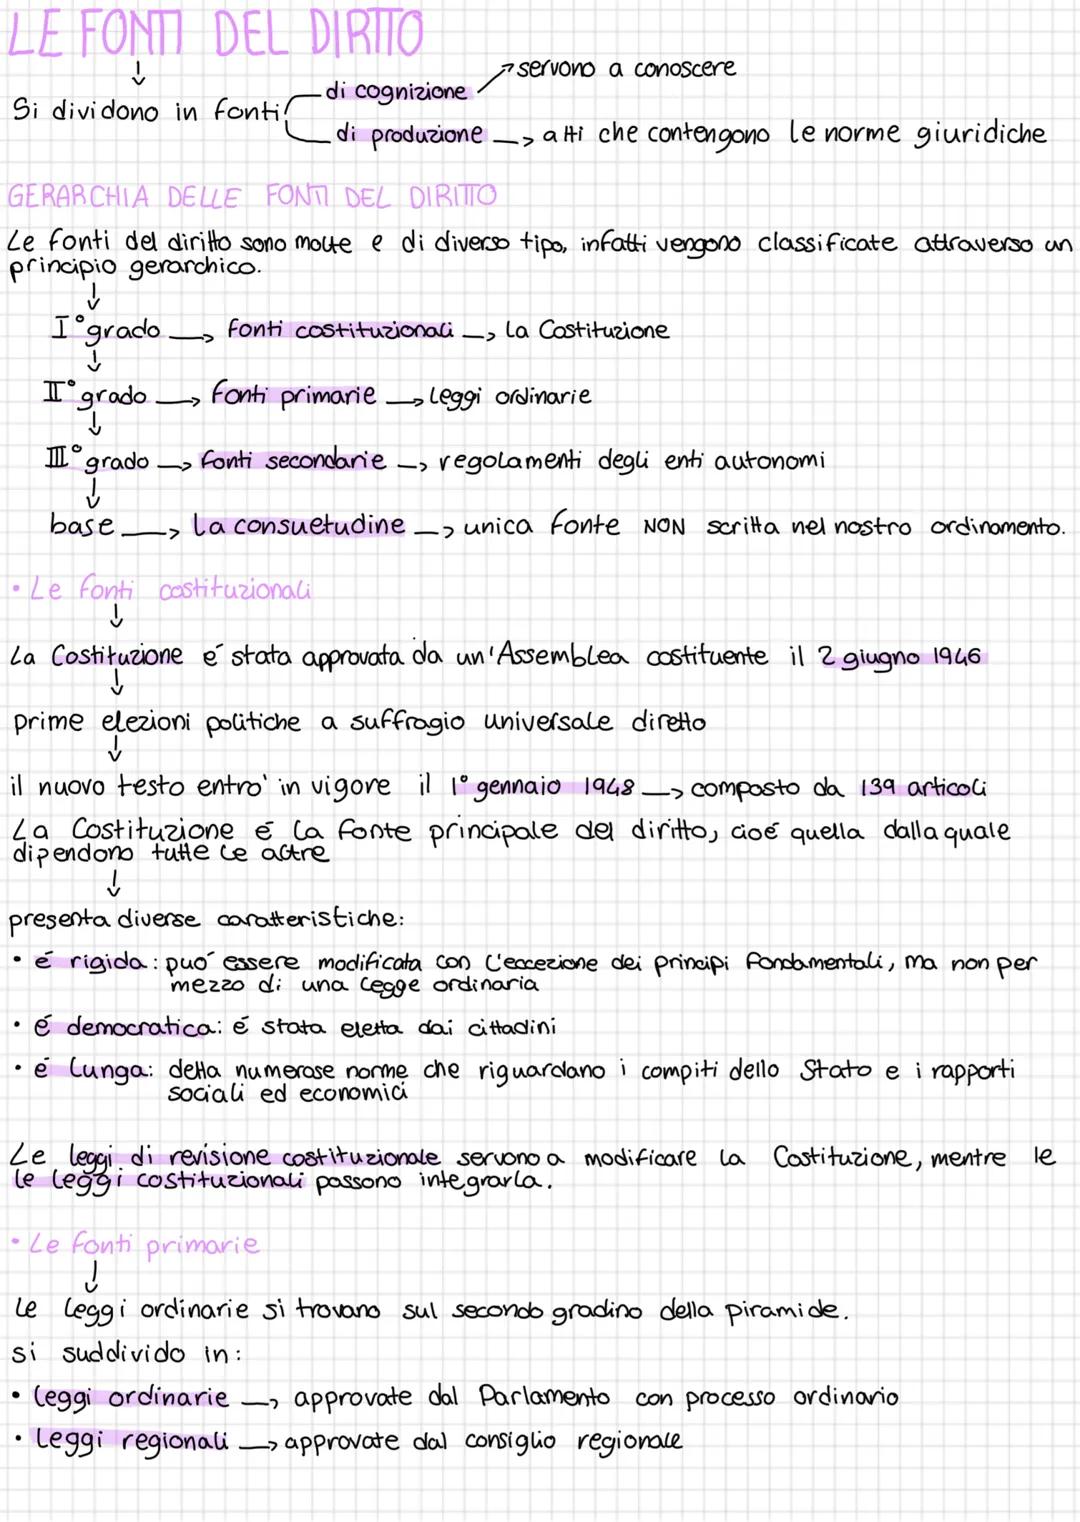 LE FONTI DEL DIRITTO
servono a conoscere
di cognizione
Si dividono in fonti
di produzione → atti che contengono le norme giuridiche
GERARCHIA DELLE FONTI DEL DIRITTO
Le fonti del diritto sono molte e di diverso tipo, infatti vengono classificate attraverso un
principio gerarchico.
I° grado → fonti costituzionali → la Costituzione
II° grado → fonti primarie → leggi ordinarie
III° grado → fonti secondarie → regolamenti degli enti autonomi
base → la consuetudine → unica fonte NON scritta nel nostro ordinamento.
• Le fonti costituzionali
La Costituzione é stata approvata da un'Assemblea costituente il 2 giugno 1946
prime elezioni politiche a suffragio universale diretto
il nuovo testo entro' in vigore il 1° gennaio 1948 → composto da 139 articoli
La Costituzione é la fonte principale del diritto, cioé quella dalla quale
dipendono tutte le altre
presenta diverse caratteristiche:
• é rigida: puó essere modificata con l'eccezione dei principi fondamentali, ma non per
mezzo di una legge ordinaria
• é democratica: é stata eletta dai cittadini
• é lunga: detta numerose norme che riguardano i compiti dello Stato e i rapporti
sociali ed economici
Le leggi di revisione costituzionale servono a modificare la Costituzione, mentre le
le leggi costituzionali possono integrarla.
• Le fonti primarie
le leggi ordinarie si trovano sul secondo gradino della piramide.
si suddivido in:
• leggi ordinarie → approvate dal Parlamento con processo ordinario
• leggi regionali → approvate dal consiglio regionale